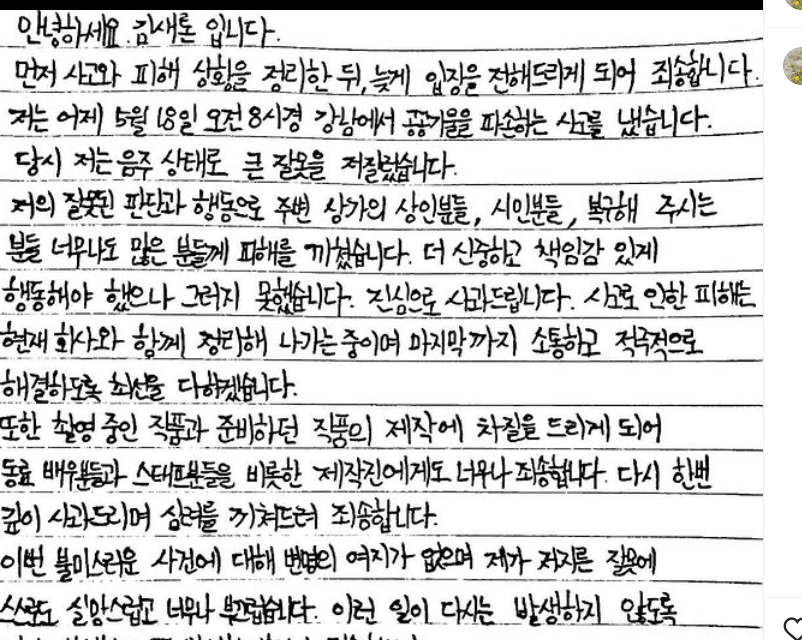 안녕하세요. 김새론 입니다.
먼저 사고와 피해 상황을 정리한 뒤, 늦게 입장을 전해드리게 되어 죄송합니다.
저는 어제 5월 18일 오전 8시경 강남에서 공공기물을 파손하는 사고를 냈습니다.
당시 저는 음주 상태로 큰 잘못을 저질렀습니다.
저의 잘못된 판단과 행동으로 주변 상가의 상인분들, 시민분들, 복구해 주시는
분들 너무나도 많은 분들께 피해를 끼쳤습니다. 더 신중하고 책임감 있게
행동해야 했으나 그러지 못했습니다. 진심으로 사과드립니다. 사고로 인한 피해는
현재 회사와 함께 정리해 나가는 중이며 마지막까지 소통하고 적극적으로
해결하도록 최선을 다하겠습니다.
또한 촬영 중인 작품과 준비하던 작품의 제작에 차질을 드리게 되어
동료 배우분들과 스태프분들을 비롯한 제작진에게도 너무나 죄송합니다. 다시 한번
깊이 사과드리며 심려를 끼쳐드려 죄송합니다.
이번 불미스러운 사건에 대해 변명의 여지가 없으며 제가 저지른 잘못에
스스로도 실망스럽고 너무나 부끄럽습니다. 이런 일이 다시는 발생하지 않도록